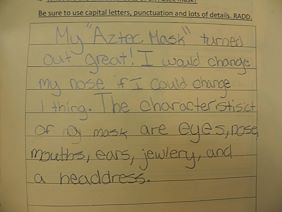 Be sure to use capital letters, punctuation and lots of details. RADD.
My "Aztec Mask" turned
out great! I would change
my nose if I could change
1 thing. The characterstisct
of my mask are eyes, nose,
mouths, ears, jewlery, and
a headdress.